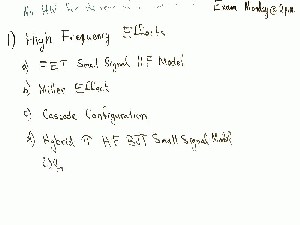 No HW for
Exam Monday @ 2 p.m.
1) High Frequency Effects
a) FET Small Signal HF Model
b) Miller Effect
c) Cascode Configuration
d) Hybrid π HF BJT Small Signal Model